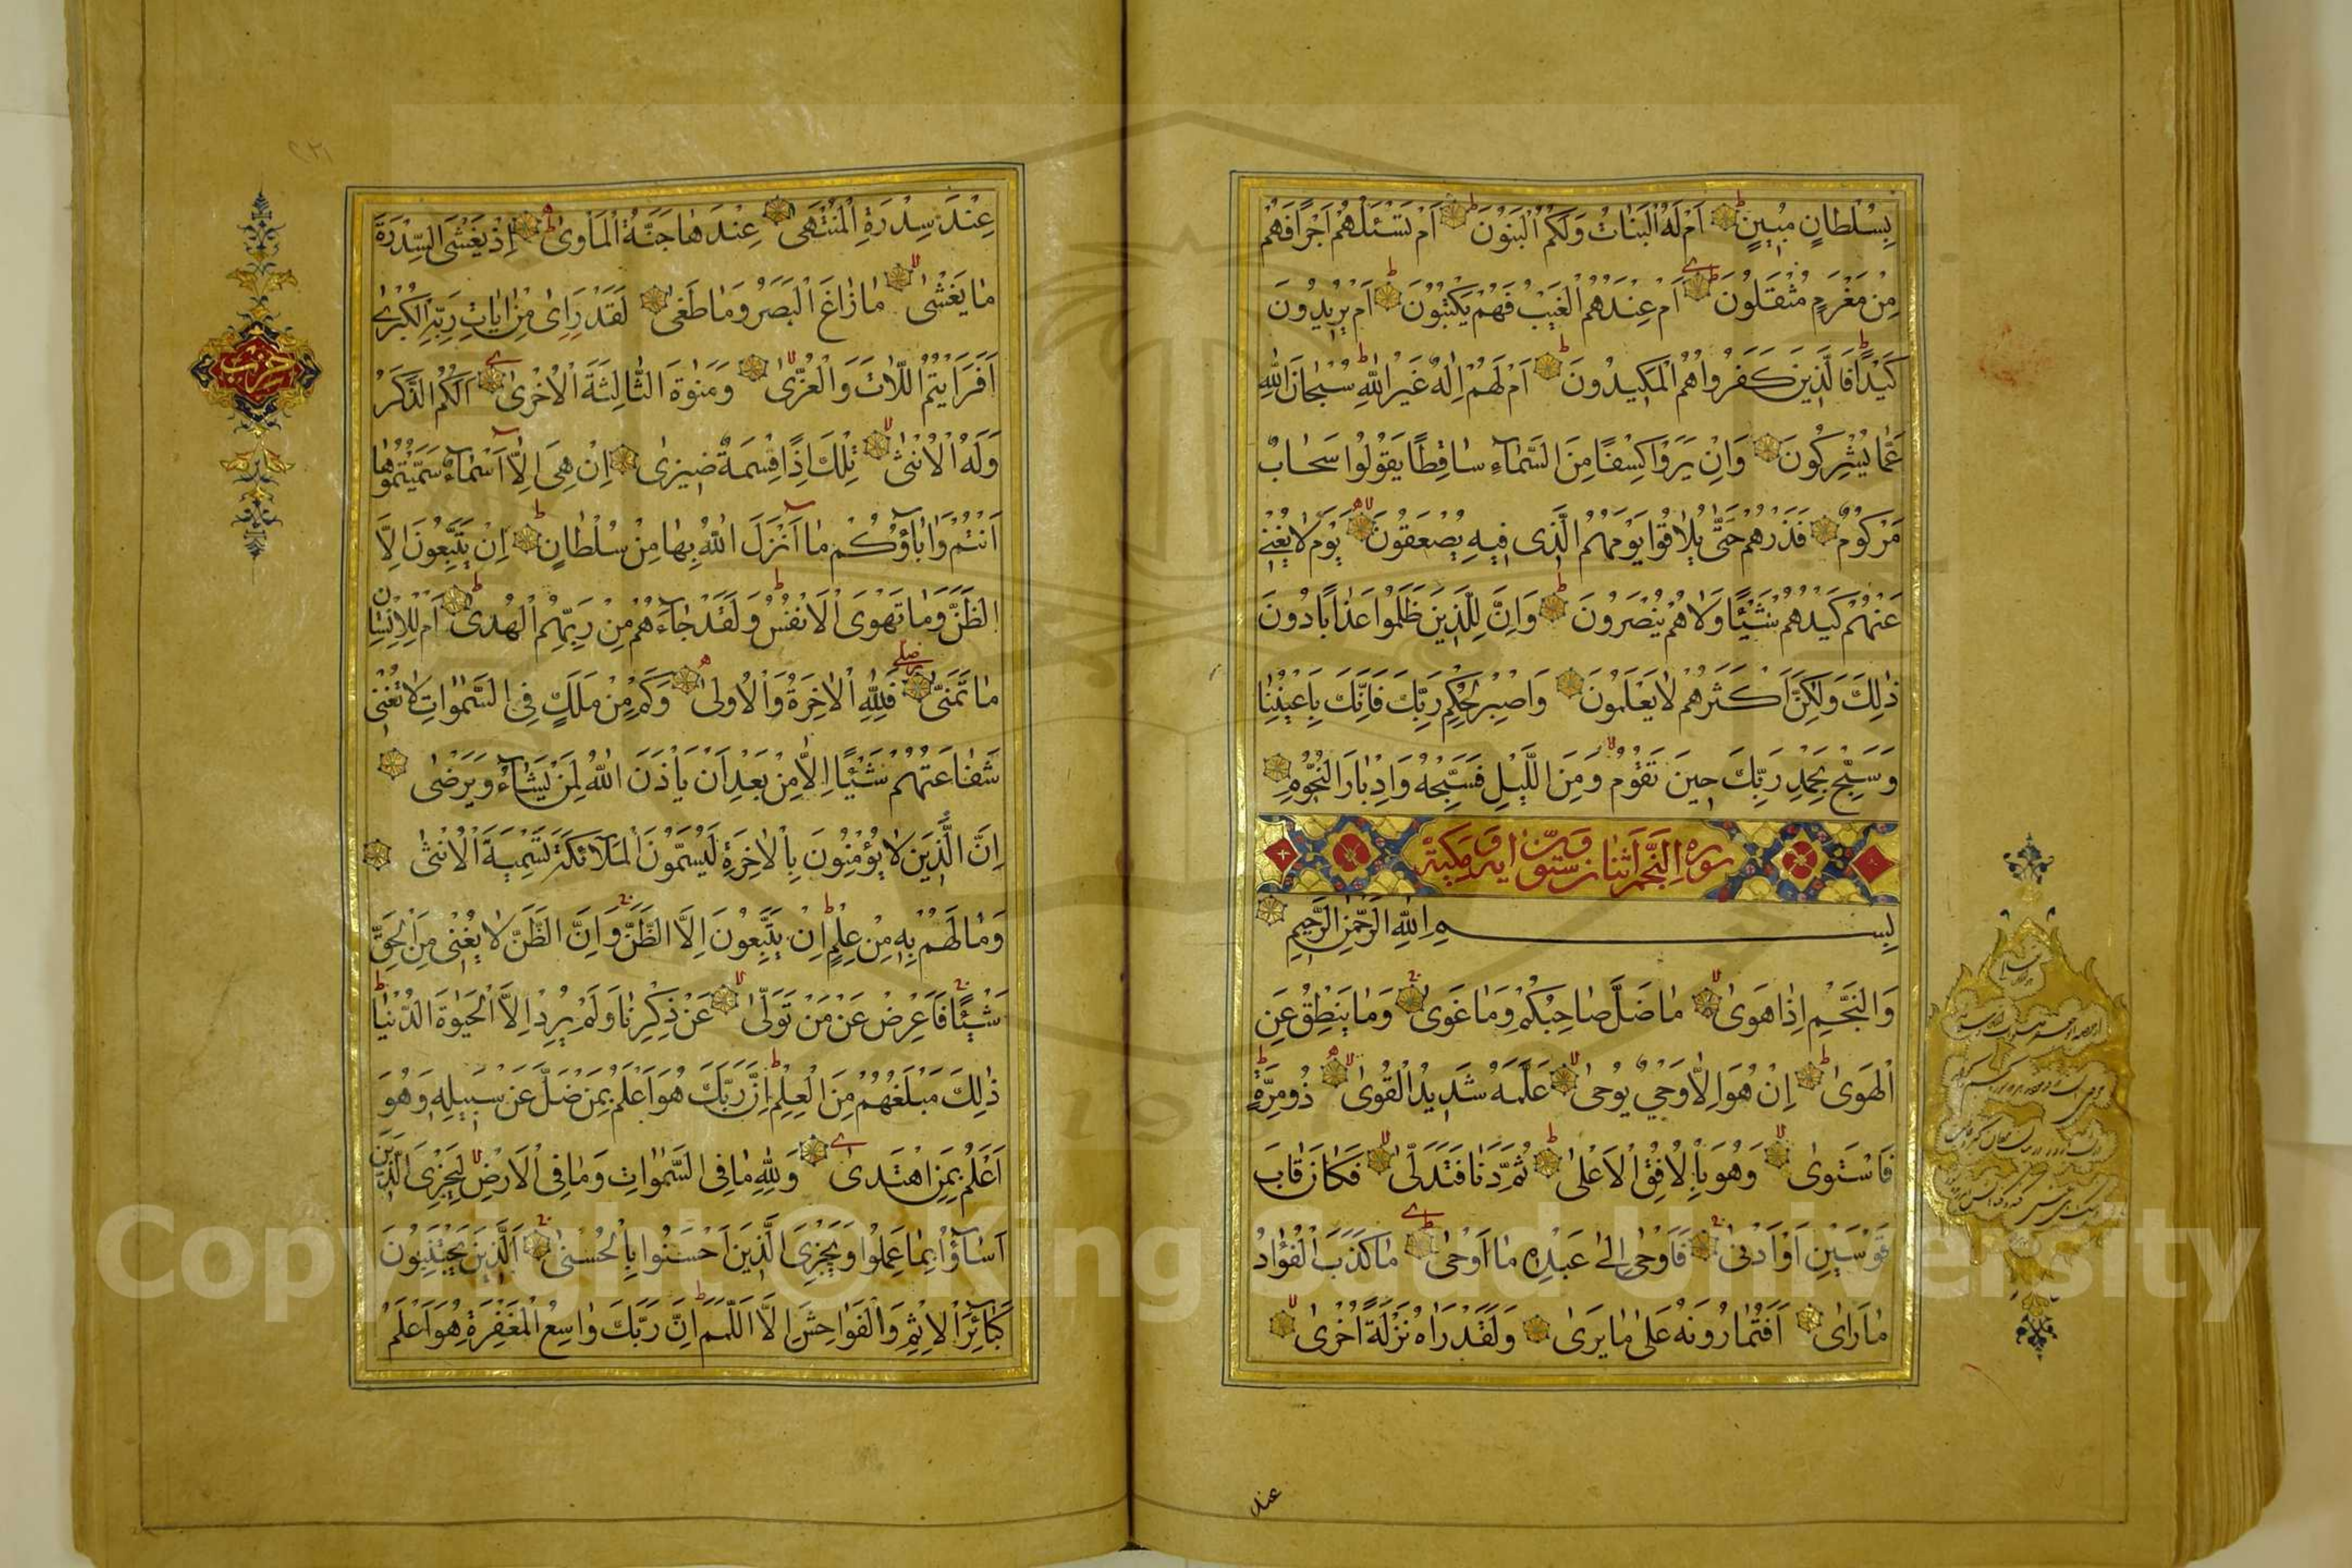 بِسُلْطَانٍ مُبِينٍ اَمْ لَهُ الْبَنَاتُ وَلَكُمُ الْبَنُونَ اَمْ تَسْئَلُهُمْ اَجْرًا فَهُمْ
مِنْ مَغْرَمٍ مُثْقَلُونَ اَمْ عِنْدَهُمُ الْغَيْبُ فَهُمْ يَكْتُبُونَ اَمْ يُرِيدُونَ
كَيْدًا فَالَّذِينَ كَفَرُوا هُمُ الْمَكِيدُونَ اَمْ لَهُمْ اِلٰهٌ غَيْرُ اللّٰهِ سُبْحَانَ اللّٰهِ
عَمَّا يُشْرِكُونَ وَاِنْ يَرَوْا كِسْفًا مِنَ السَّمَآءِ سَاقِطًا يَقُولُوا سَحَابٌ
مَرْكُومٌ فَذَرْهُمْ حَتّٰى يُلَاقُوا يَوْمَهُمُ الَّذِى فِيهِ يُصْعَقُونَ يَوْمَ لَا يُغْنِى
عَنْهُمْ كَيْدُهُمْ شَيْئًا وَلَا هُمْ يُنْصَرُونَ وَاِنَّ لِلَّذِينَ ظَلَمُوا عَذَابًا دُونَ
ذٰلِكَ وَلٰكِنَّ اَكْثَرَهُمْ لَا يَعْلَمُونَ وَاصْبِرْ لِحُكْمِ رَبِّكَ فَاِنَّكَ بِاَعْيُنِنَا
وَسَبِّحْ بِحَمْدِ رَبِّكَ حِينَ تَقُومُ وَمِنَ اللَّيْلِ فَسَبِّحْهُ وَاِدْبَارَ النُّجُومِ
سورة النجم اثنان وستون اية وهى مكية
بِسْمِ اللّٰهِ الرَّحْمٰنِ الرَّحِيمِ
وَالنَّجْمِ اِذَا هَوٰى مَا ضَلَّ صَاحِبُكُمْ وَمَا غَوٰى وَمَا يَنْطِقُ عَنِ
الْهَوٰى اِنْ هُوَ اِلَّا وَحْيٌ يُوحٰى عَلَّمَهُ شَدِيدُ الْقُوٰى ذُو مِرَّةٍ
فَاسْتَوٰى وَهُوَ بِالْاُفُقِ الْاَعْلٰى ثُمَّ دَنَا فَتَدَلّٰى فَكَانَ قَابَ
قَوْسَيْنِ اَوْ اَدْنٰى فَاَوْحٰى اِلٰى عَبْدِهِ مَا اَوْحٰى مَا كَذَبَ الْفُؤَادُ
مَا رَاٰى اَفَتُمَارُونَهُ عَلٰى مَا يَرٰى وَلَقَدْ رَاٰهُ نَزْلَةً اُخْرٰى
عند
عِنْدَ سِدْرَةِ الْمُنْتَهٰى عِنْدَهَا جَنَّةُ الْمَاْوٰى اِذْ يَغْشَى السِّدْرَةَ
مَا يَغْشٰى مَا زَاغَ الْبَصَرُ وَمَا طَغٰى لَقَدْ رَاٰى مِنْ اٰيَاتِ رَبِّهِ الْكُبْرٰى
اَفَرَاَيْتُمُ اللَّاتَ وَالْعُزّٰى وَمَنٰوةَ الثَّالِثَةَ الْاُخْرٰى اَلَكُمُ الذَّكَرُ
وَلَهُ الْاُنْثٰى تِلْكَ اِذًا قِسْمَةٌ ضِيزٰى اِنْ هِىَ اِلَّا اَسْمَآءٌ سَمَّيْتُمُوهَا
اَنْتُمْ وَاٰبَآؤُكُمْ مَا اَنْزَلَ اللّٰهُ بِهَا مِنْ سُلْطَانٍ اِنْ يَتَّبِعُونَ اِلَّا
الظَّنَّ وَمَا تَهْوَى الْاَنْفُسُ وَلَقَدْ جَآءَهُمْ مِنْ رَبِّهِمُ الْهُدٰى اَمْ لِلْاِنْسَانِ
مَا تَمَنّٰى فَلِلّٰهِ الْاٰخِرَةُ وَالْاُولٰى وَكَمْ مِنْ مَلَكٍ فِى السَّمٰوَاتِ لَا تُغْنِى
شَفَاعَتُهُمْ شَيْئًا اِلَّا مِنْ بَعْدِ اَنْ يَاْذَنَ اللّٰهُ لِمَنْ يَشَآءُ وَيَرْضٰى
اِنَّ الَّذِينَ لَا يُؤْمِنُونَ بِالْاٰخِرَةِ لَيُسَمُّونَ الْمَلَآئِكَةَ تَسْمِيَةَ الْاُنْثٰى
وَمَا لَهُمْ بِهِ مِنْ عِلْمٍ اِنْ يَتَّبِعُونَ اِلَّا الظَّنَّ وَاِنَّ الظَّنَّ لَا يُغْنِى مِنَ الْحَقِّ
شَيْئًا فَاَعْرِضْ عَنْ مَنْ تَوَلّٰى عَنْ ذِكْرِنَا وَلَمْ يُرِدْ اِلَّا الْحَيٰوةَ الدُّنْيَا
ذٰلِكَ مَبْلَغُهُمْ مِنَ الْعِلْمِ اِنَّ رَبَّكَ هُوَ اَعْلَمُ بِمَنْ ضَلَّ عَنْ سَبِيلِهِ وَهُوَ
اَعْلَمُ بِمَنِ اهْتَدٰى وَلِلّٰهِ مَا فِى السَّمٰوَاتِ وَمَا فِى الْاَرْضِ لِيَجْزِىَ الَّذِينَ
اَسَآؤُا بِمَا عَمِلُوا وَيَجْزِىَ الَّذِينَ اَحْسَنُوا بِالْحُسْنٰى اَلَّذِينَ يَجْتَنِبُونَ
كَبَآئِرَ الْاِثْمِ وَالْفَوَاحِشَ اِلَّا اللَّمَمَ اِنَّ رَبَّكَ وَاسِعُ الْمَغْفِرَةِ هُوَ اَعْلَمُ
حزب
Copyright © King Saud University
1957